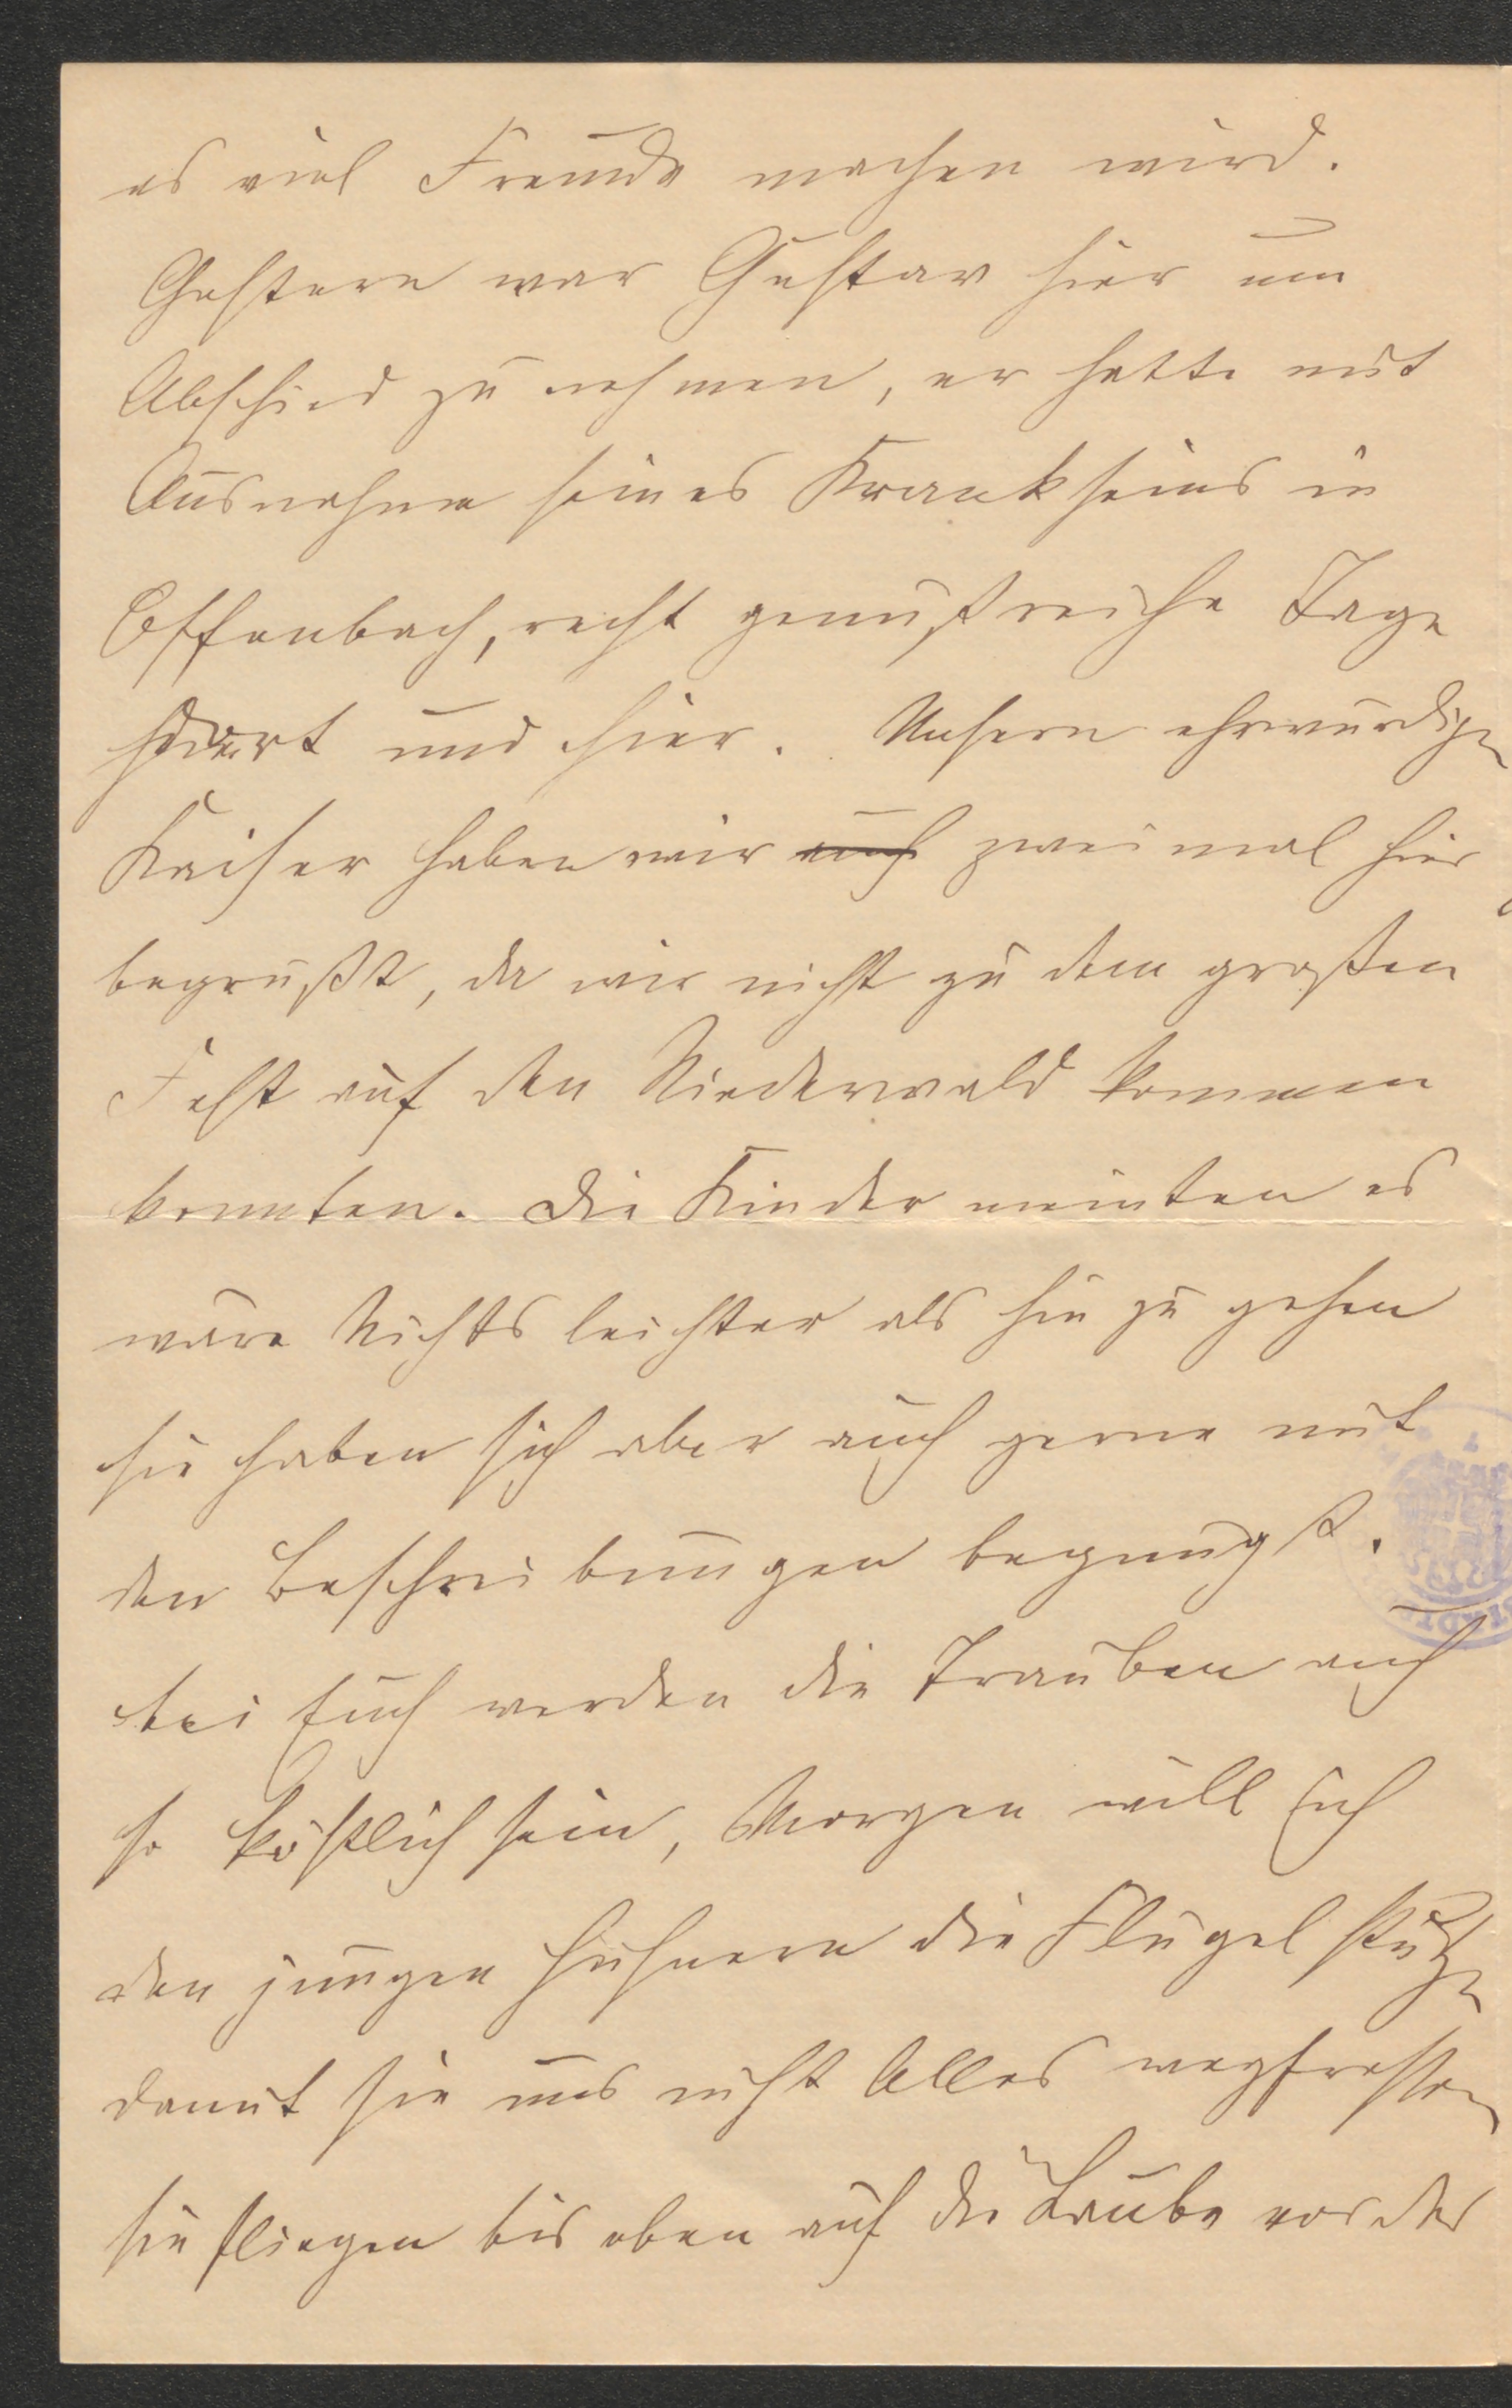 es viel Freude machen wird.
Gestern war Gustav hier um
Abschied zu nehmen, er hatte mit
Ausnahme seines Krankseins in
Offenbach, recht genußreiche Tage
dort und hier. Unsern ehrwürdigen
Kaiser haben wir auch zweimal hier
begrüßt, da wir nicht zu dem großen
Fest auf den Niederwald kommen
konnten. Die Kinder meinten es
wäre Nichts leichter als hin zu gehen
sie haben sich aber auch gerne mit
den Beschreibungen begnügt.
bei Euch werden die Trauben auch
so köstlich sein, Morgen will ich
den jungen Hühnern die Flügel stutzen
damit sie uns nicht Alles wegfressen
sie fliegen bis oben auf die Laube vor der